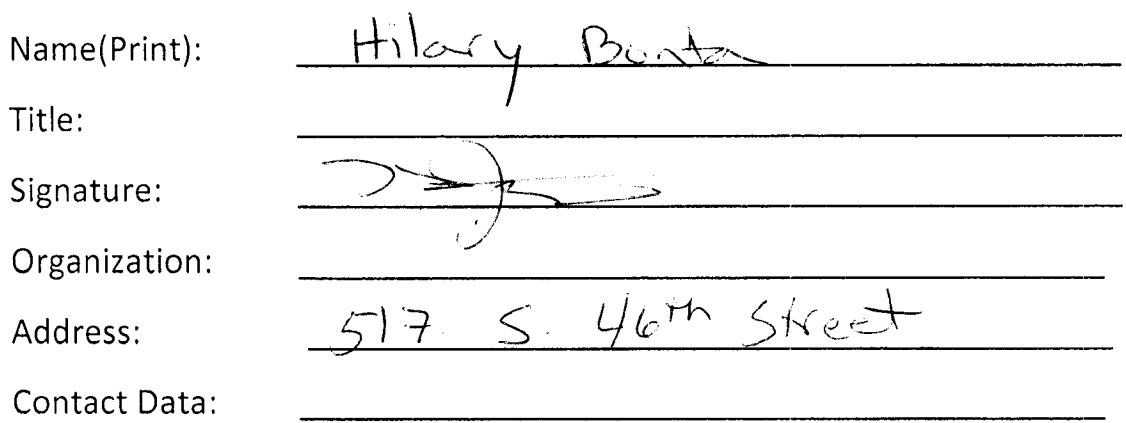 Name(Print): Hilary Bonta
Title:
Signature:
Organization:
Address: 517 S. 46th Street
Contact Data: